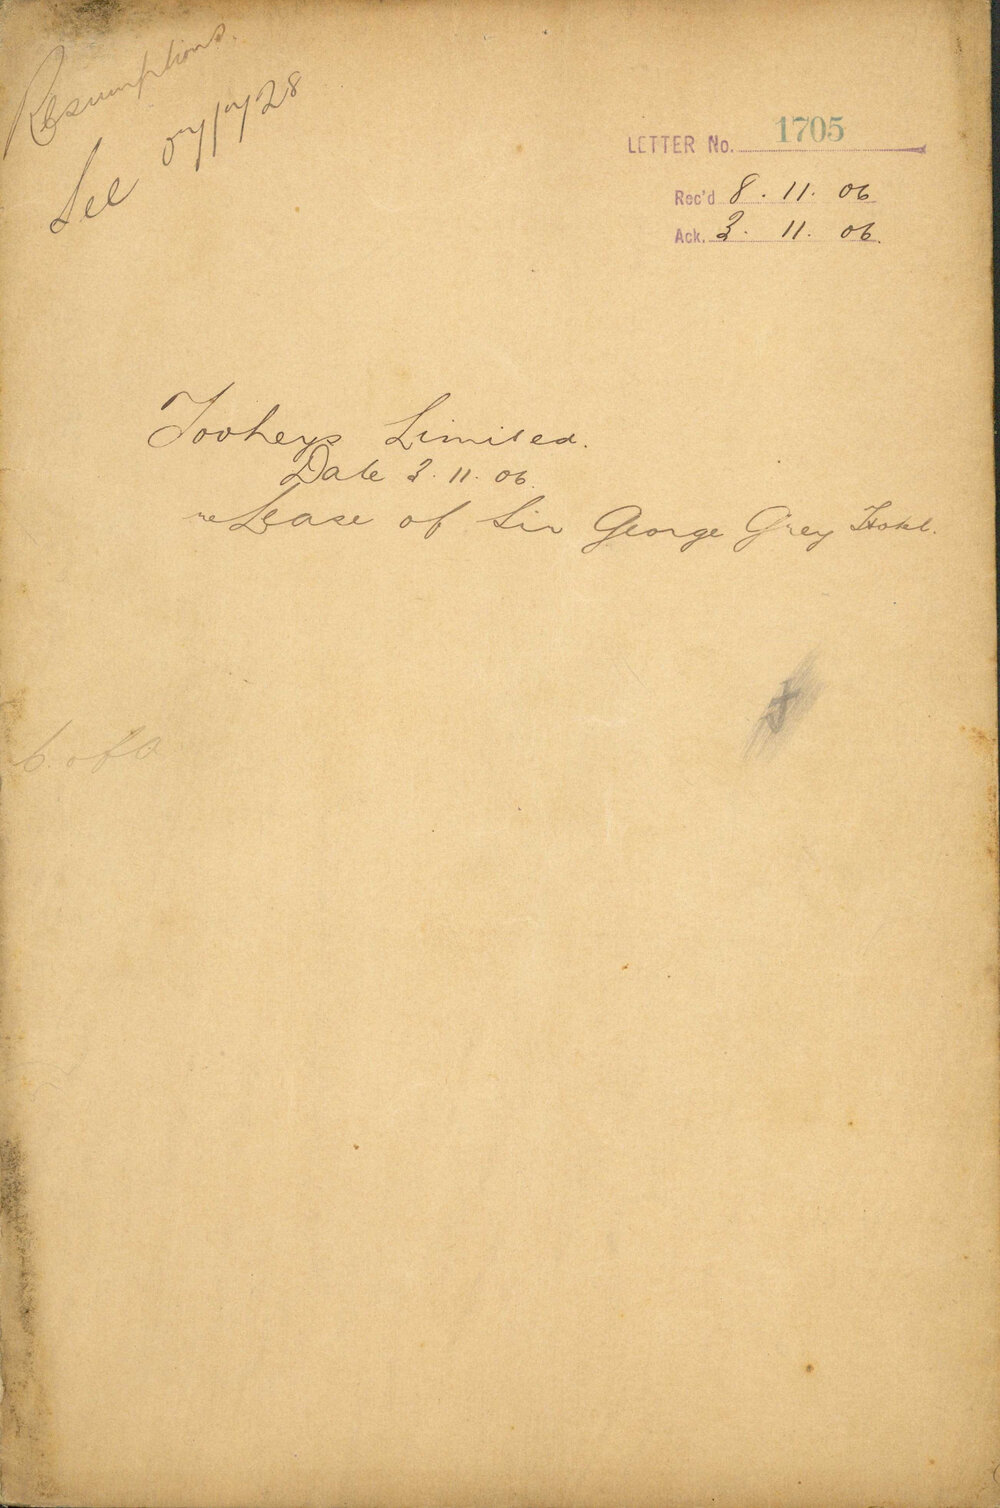 Resumptions.
See 07/1728
LETTER No. 1705
Rec'd 8. 11. 06
Ack. 3. 11. 06.
Tooheys Limited.
Date 3. 11. 06.
re Lease of Sir George Grey Hotel.